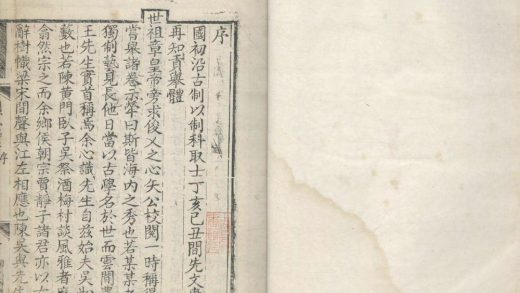 序
國初沿古制以制科取士丁亥已丑間先文
再知貢舉體
世祖章皇帝旁求俊乂之心矢公校閱一時稱得
嘗舉諸卷示犖曰斯皆海內之秀也若某某
獨制藝見長他日當以古學名於世而雲間
王先生實首稱焉余心識先生自茲始夫吳
藪也若陳黃門臥子吳祭酒梅村談風雅者
翕然宗之而余鄉侯朝宗賈靜子諸君亦以古
辭樹幟梁宋間聲與江左相應也陳吳與先生